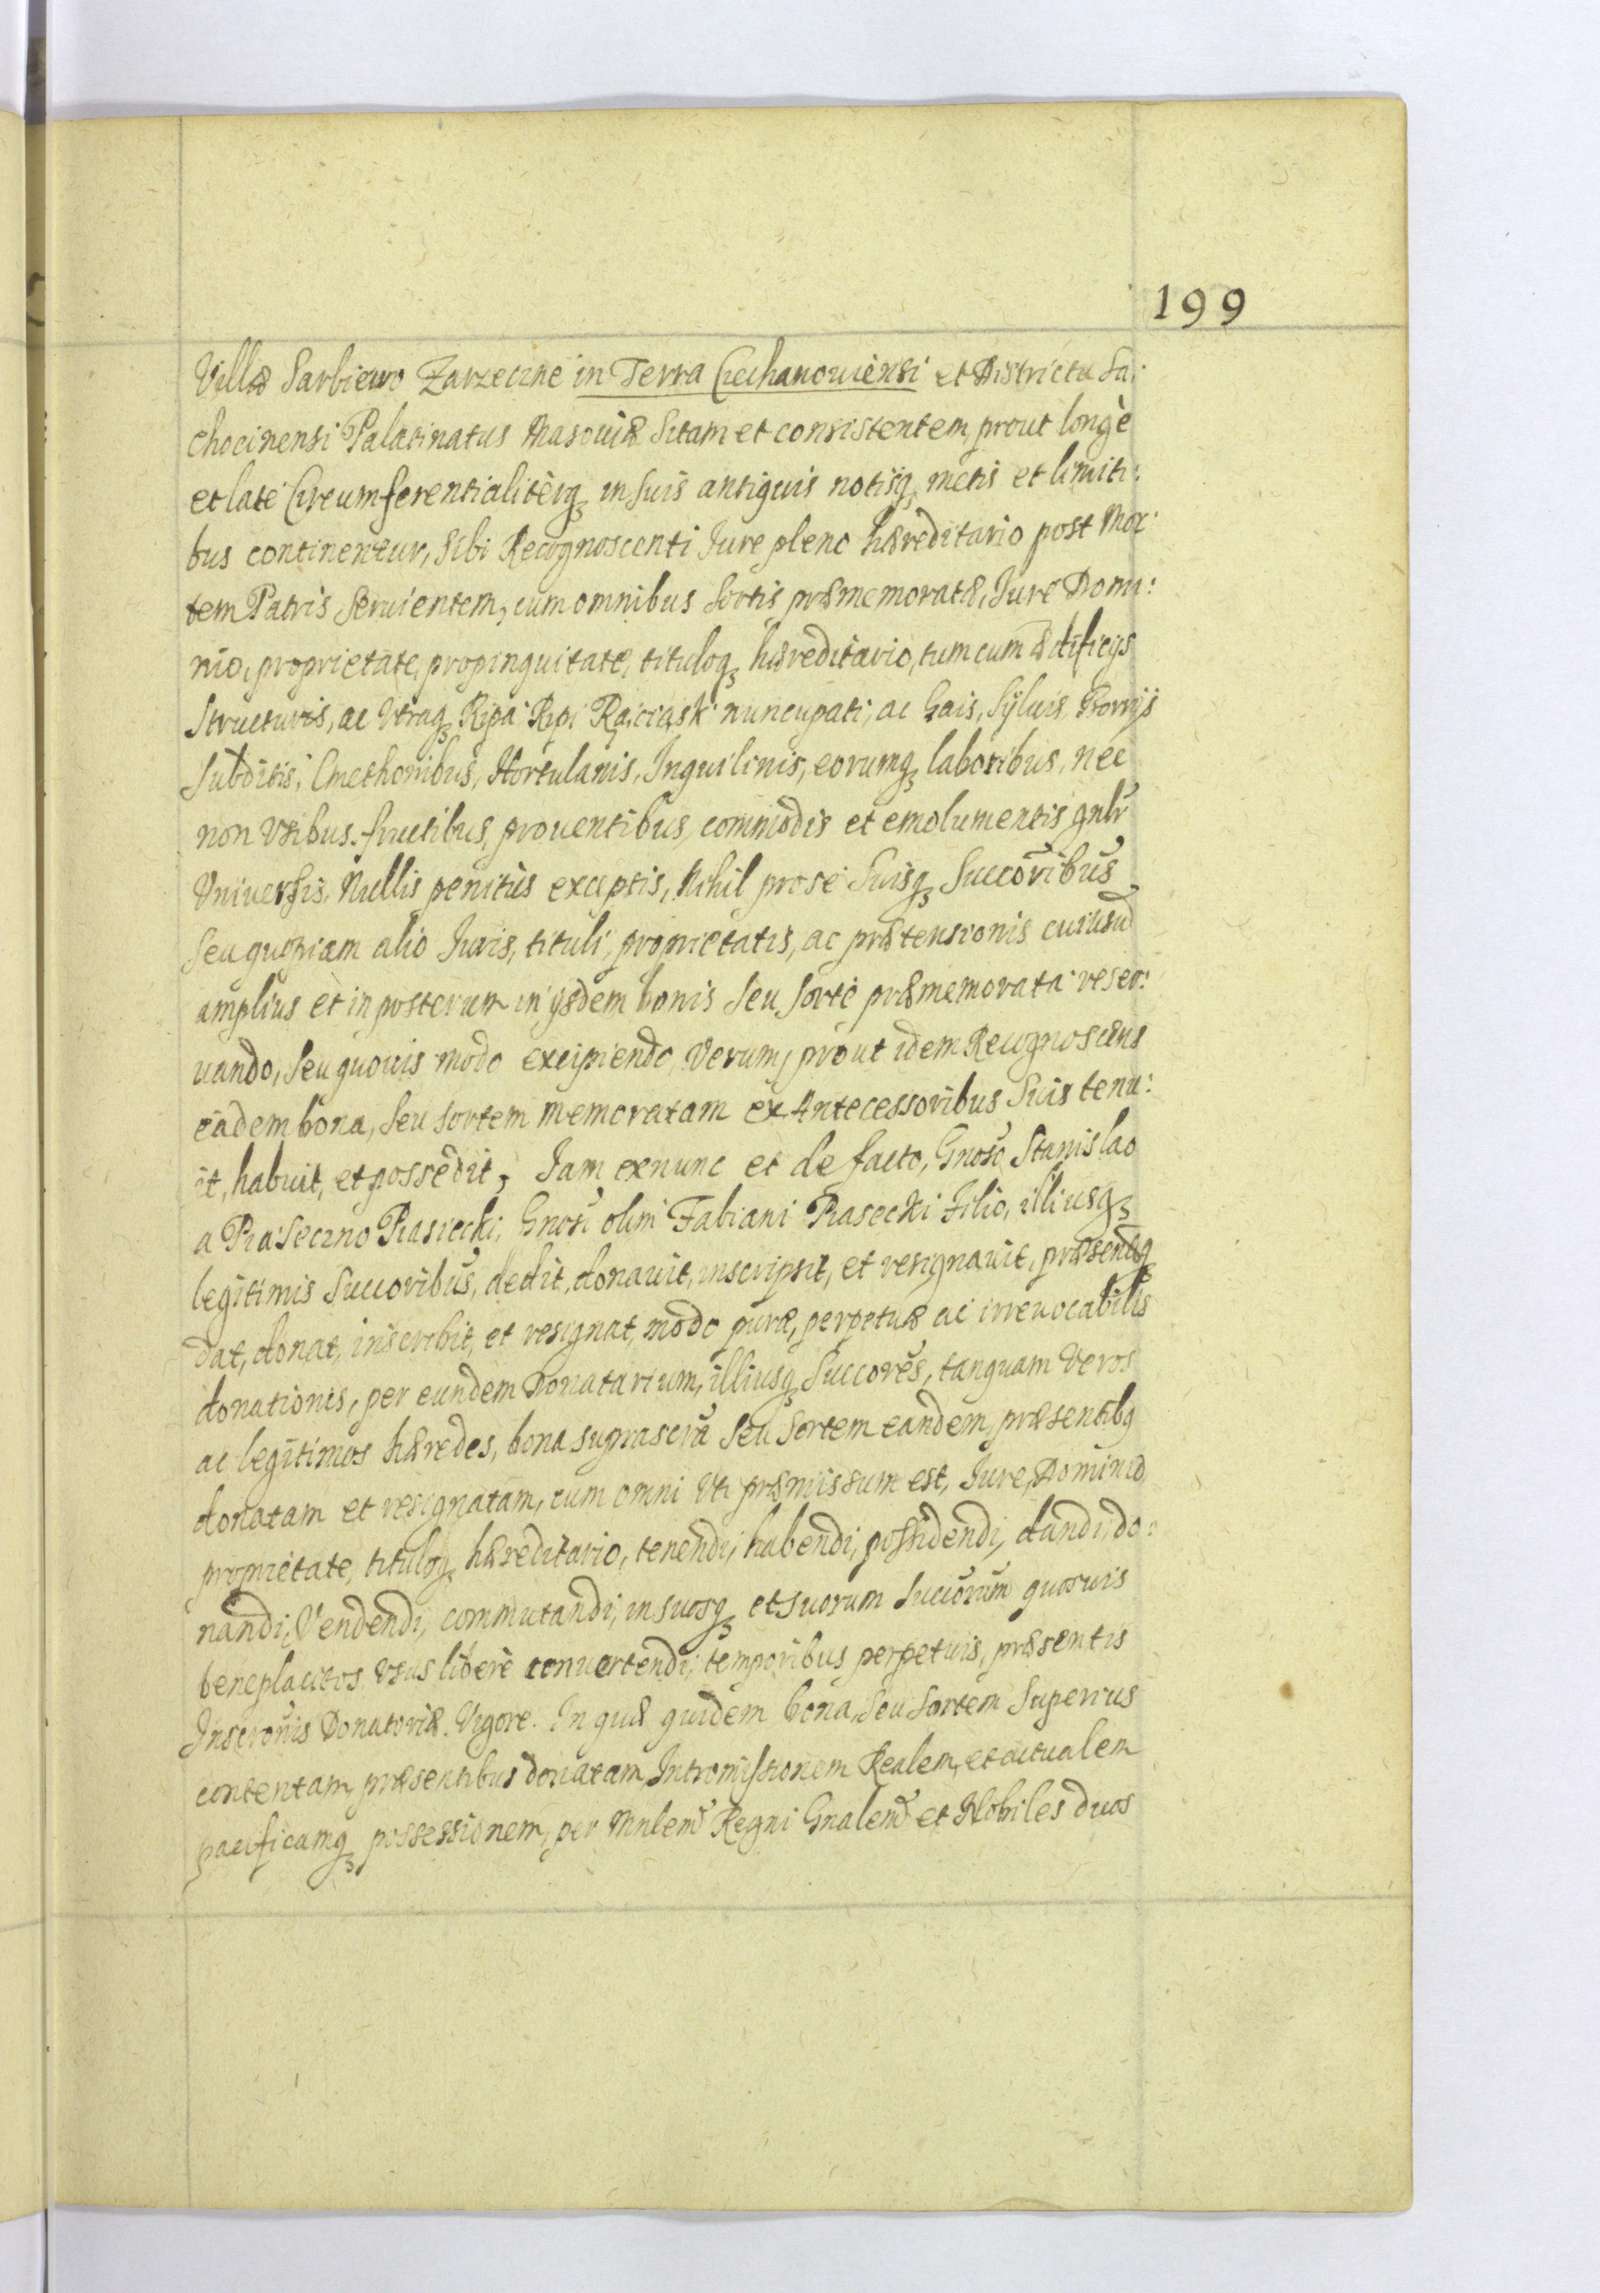 199
Villæ Sarbiewo Zarzeczne in Terra Ciechanoviensi et Districtu Sa:
chocinensi Palatinatus Masoviæ Sitam et consistentem, prout longè
et latè Circumferentialiterq₃ in suis antiquis notisq₃ metis et limiti:
bus continentur, Sibi Recognoscenti Jure pleno hæreditario post Mor:
tem Patris Servientem, cum omnibus Sortis præmemoratæ, Jure Domi:
nio, proprietate, propinquitate, tituloq₃ hæreditario, tum cum ædificijs
Structuris, ac Utraq₃ Ripa Ripi Raiciask nuncupati, ac Gais, Sylvis
Subditis, Cmethonibus, Hortulanis, Inquilinis, eorumq₃ laboribus, nec
non Usibus, fructibus, proventibus, commodis et emolumentis gnlr
Universis, Nullis penitùs exceptis, Nihil pro se Suisq₃ Succoribus
Seu quopiam alio Juris, tituli, proprietatis, ac prætensionis cuiusd
amplius et in posterum in ijsdem bonis Seu Sorte præmemorata reser:
vando, Seu quovis modo excipiendo, Verum, prout idem Recognoscens
eadem bona, Seu Sortem memoratam ex Antecessoribus Suis tenu:
it, habuit, et possedit, Jam exnunc et de facto, Gnoso Stanislao
a Piaseczno Piasiecki, Gnosi olim Fabiani Piasecki Filio, illiusq₃
legitimis Succoribus, dedit, donavit, inscripsit, et resignavit, præsentibq
dat, donat, inscribit, et resignat, modo puræ, perpetuæ ac irrevocabilis
donationis, per eundem Donatarium, illiusq₃ Succores, tanquam Veros
ac legitimos hæredes, bona suprascrã Seu Sortem eandem, præsentibq
donatam et resignatam, cum omni Uti præmissum est, Jure, Dominio,
proprietate, tituloq₃ hæreditario, tenendi, habendi, possidendi, dandi, do:
nandi, Vendendi, commutandi, in suosq₃ et suorum Succorum quosvis
beneplacitos Usus liberè convertendi, temporibus perpetuis, præsentis
Inscronis Donatoriæ Vigore. In quæ quidem bona, Seu Sortem Superius
contentam, præsentibus donatam, Intromissionem Realem, et actualem
pacificamq₃ possessionem, per Mnlem Regni Gnalem et Nobiles duos